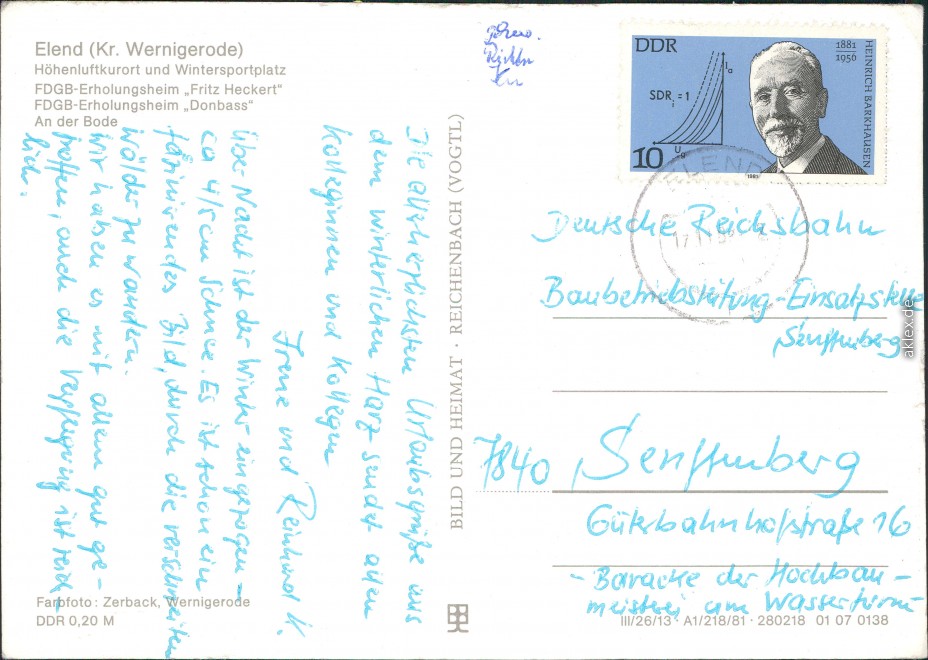 Elend (Kr. Wernigerode)
Höhenluftkurort und Wintersportplatz
FDGB-Erholungsheim „Fritz Heckert“
FDGB-Erholungsheim „Donbass“
An der Bode
Die allerherzlichsten Urlaubsgrüße aus
dem winterlichen Harz sendet allen
Kolleginnen und Kollegen
Irene und Reinhard K.
Über Nacht ist der Winter eingezogen -
ca 4/5 cm Schnee. Es ist schon ein
faszinierendes Bild, durch die verschneiten
Wälder zu wandern.
Wir haben es mit allem gut ge-
troffen, auch die Verpflegung ist reich-
lich.
Farbfoto: Zerback, Wernigerode
DDR 0,20 M
BILD UND HEIMAT · REICHENBACH (VOGTL)
DDR
1881
1956
HEINRICH BARKHAUSEN
SDRi = 1
Ia
Ug
10
1981
ELEND
17.11.
Deutsche Reichsbahn
Baubetriebsleitung-Einsatzstelle
Senftenberg
7840 Senftenberg
Güterbahnhofstraße 16
- Baracke der Hochbau-
meisterei am Wasserturm
III/26/13 · A1/218/81 · 280218 01 07 0138
aklex.de